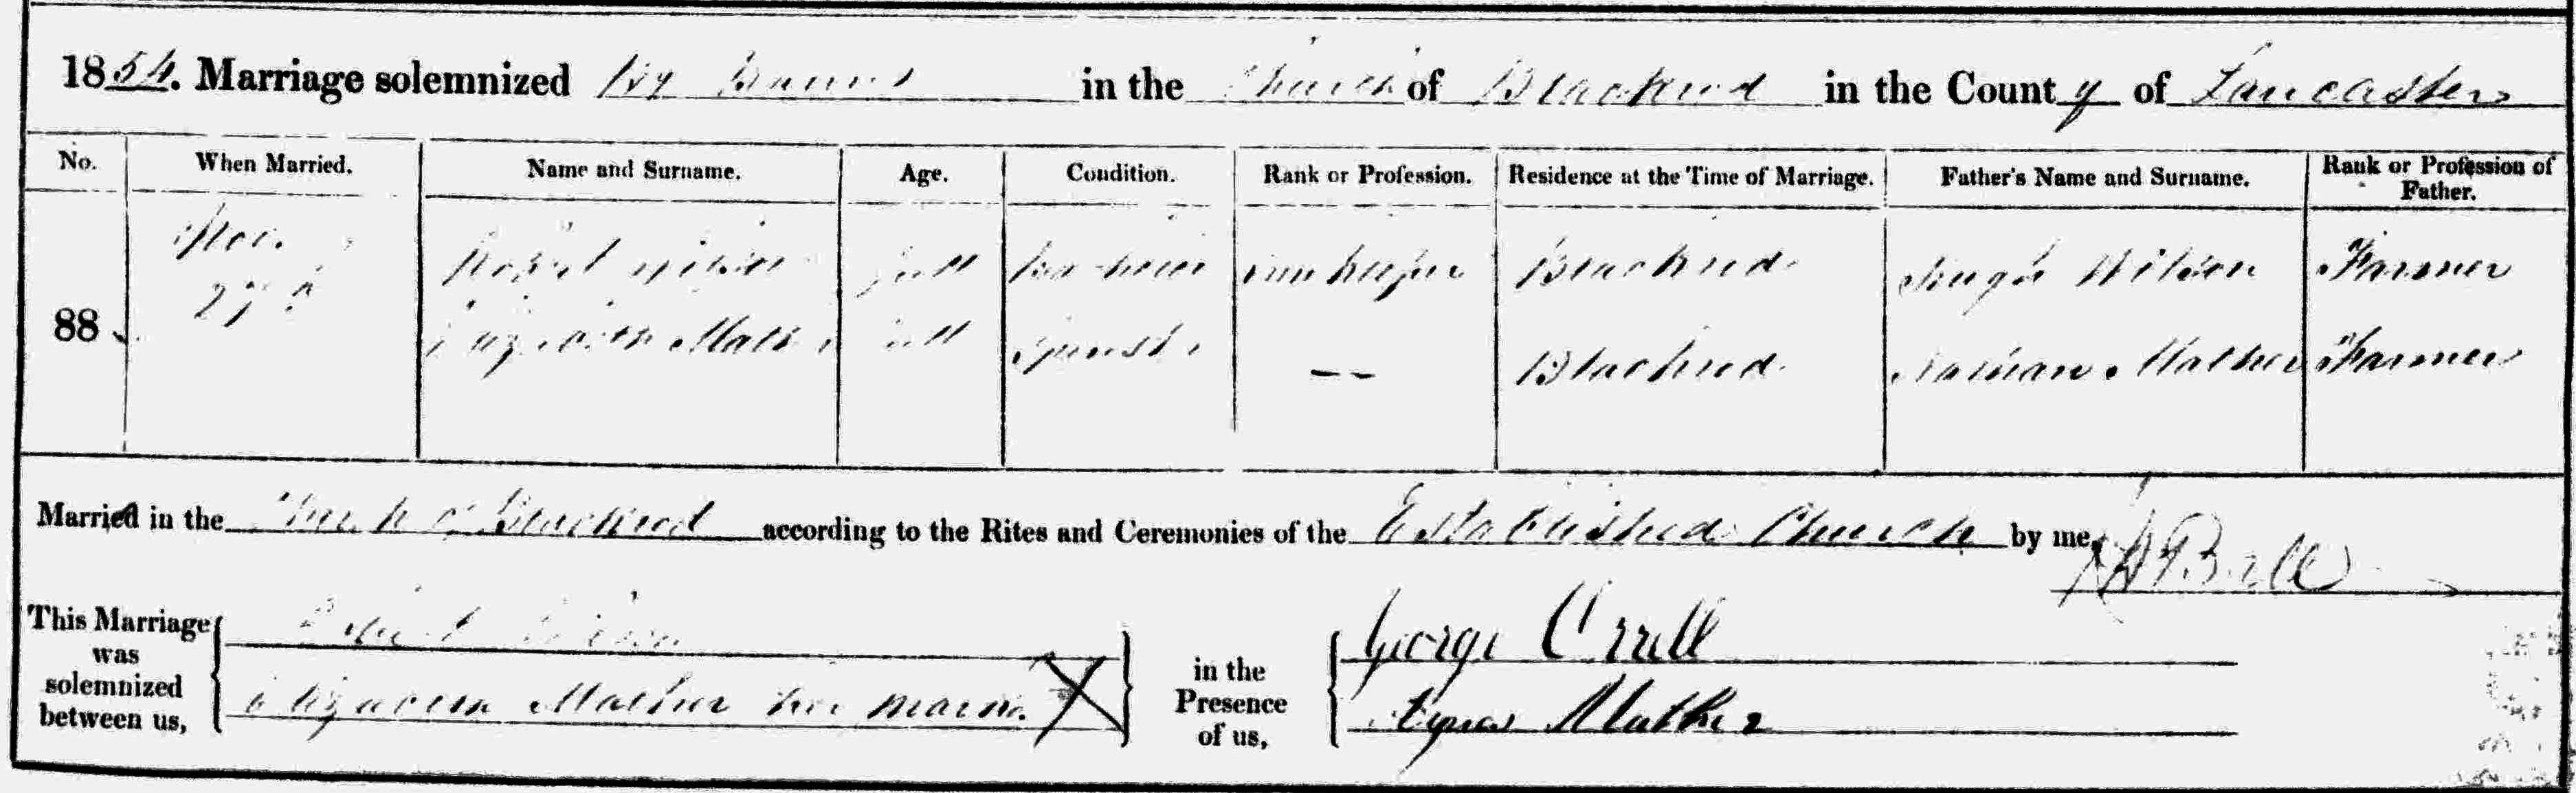 1854. Marriage solemnized by Banns in the Church of Blackrod in the County of Lancaster
No. When Married. Name and Surname. Age. Condition. Rank or Profession. Residence at the Time of Marriage. Father's Name and Surname. Rank or Profession of Father.
Nov. Robert Wilson full Bachelor Innkeeper Blackrod Hugh Wilson Farmer
88 27th Elizabeth Mather full Spinster -- Blackrod Mather Farmer
Married in the Church of Blackrod according to the Rites and Ceremonies of the Established Church by me,
This Marriage was solemnized between us, Robert Wilson in the Presence of us, George Orrell
Elizabeth Mather her mark X Agnes Mather